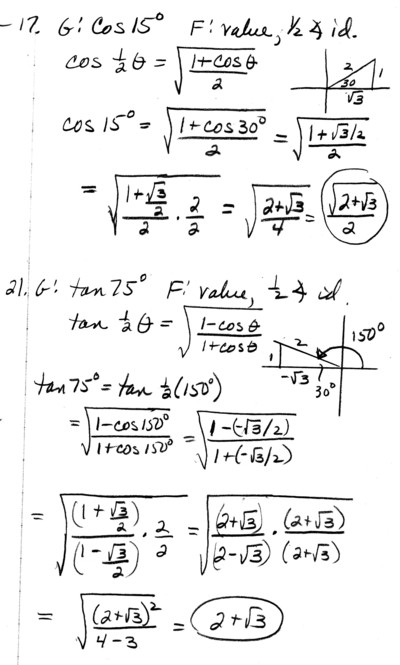 17. G: cos 15° F: value, ½ ∡ id.
cos ½ θ = √((1+cos θ)/2)
2 1
30
√3
cos 15° = √((1+cos 30°)/2) = √((1+√3/2)/2)
= √((1+√3/2)/2 · 2/2) = √((2+√3)/4) = √(2+√3)/2
21. G: tan 75° F: value, ½ ∡ id.
tan ½ θ = √((1-cos θ)/(1+cos θ))
150°
2
1
-√3
30°
tan 75° = tan ½ (150°)
= √((1-cos 150°)/(1+cos 150°)) = √((1-(-√3/2))/(1+(-√3/2)))
= √((1+√3/2)/(1-√3/2) · 2/2) = √((2+√3)/(2-√3) · (2+√3)/(2+√3))
= √((2+√3)²/(4-3)) = 2+√3